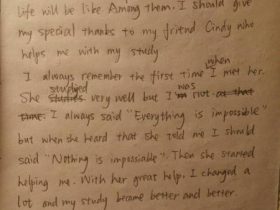 life will be like Among them. I should give
my special thanks to my friend Cindy who
helps me with my study
I always remember the first time when I met her.
She studies studied very well but I'm was not at that
time. I always said "Everything is impossible"
but when she heard that she told me I should
said "Nothing is impossible". Then she started
helping me. With her great help, I changed a
lot and my study became better and better